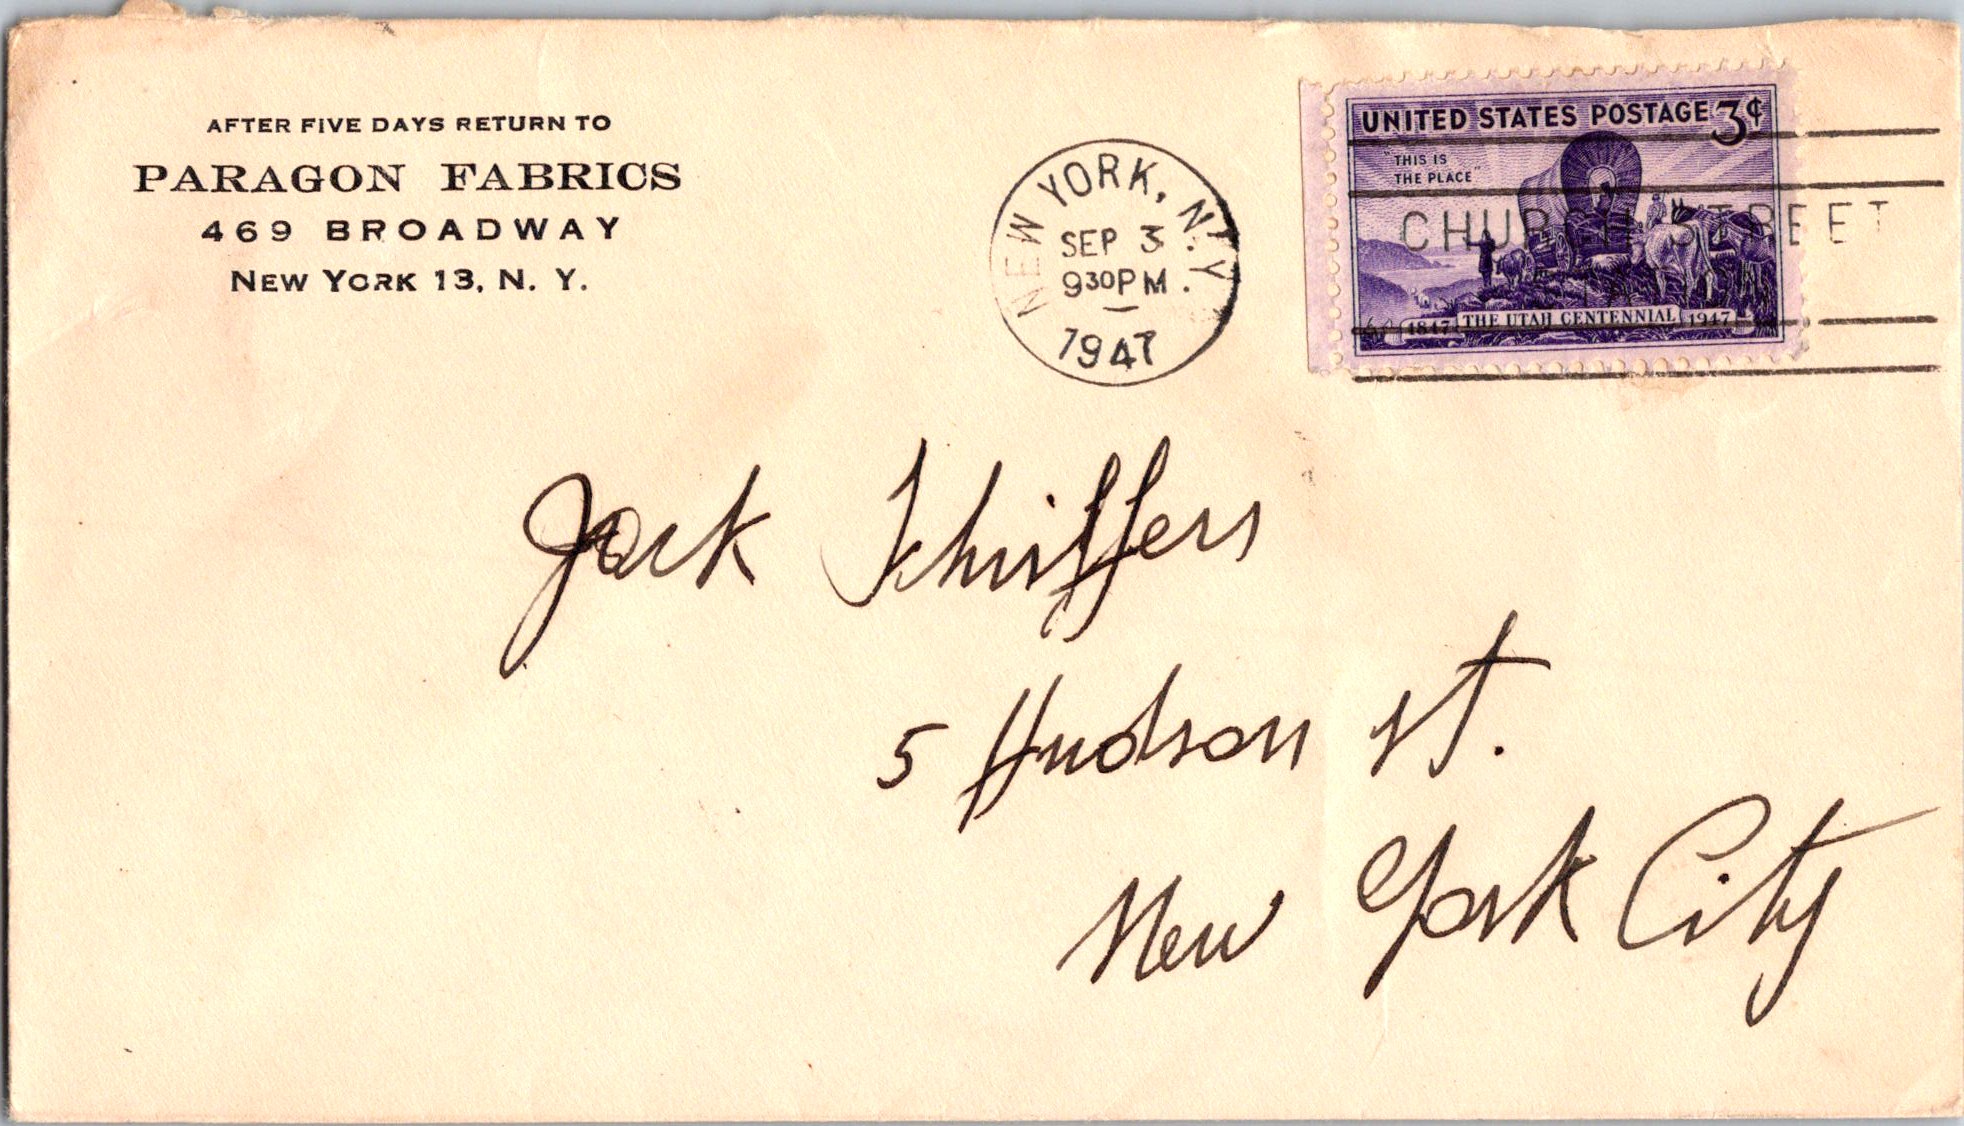 AFTER FIVE DAYS RETURN TO
PARAGON FABRICS
469 BROADWAY
NEW YORK 13, N. Y.
NEW YORK, N.Y.
SEP 3
930PM
1947
UNITED STATES POSTAGE 3¢
"THIS IS
THE PLACE"
CHURCH STREET
1847 THE UTAH CENTENNIAL 1947
Jack Schiffers
5 Hudson St.
New York City